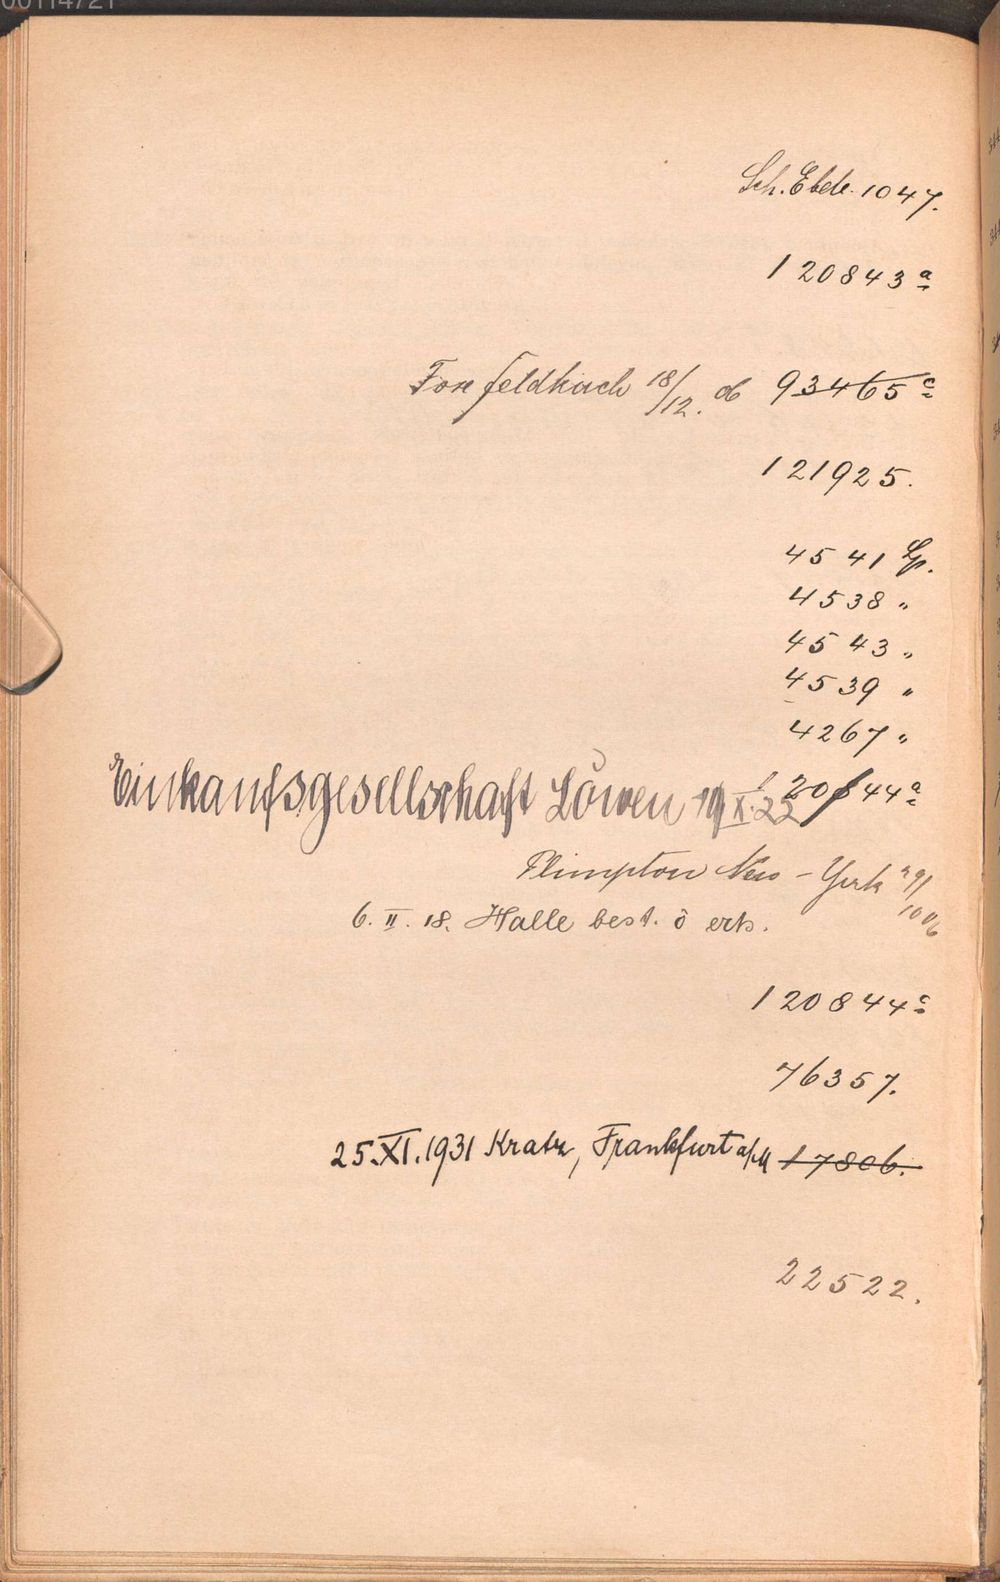 00114721
Sch. Ebde. 1047.
120843 a
feldkirch 18/12. 93465 c
121925.
4541 Lp.
4538 "
4543 "
4539 "
4267 "
Einkaufsgesellschaft Löwen 19 X. 22 120844 a
Plimpton New-York
6. II. 18. Halle best. ö erh.
120844 c
76357.
25. XI. 1931 Kratz, Frankfurt a/M 17806.
22522.